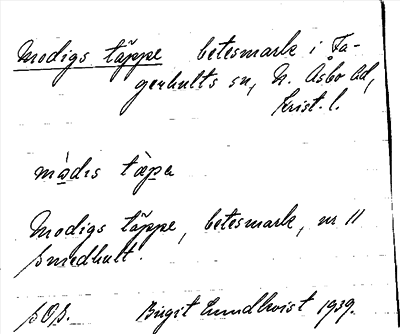 Modigs täppe betesmark i Fa-
gerhults sn, N. Åsbo hd,
Krist. l.
mòdɩs tæpa
Modigs täppe, betesmark, nr 11
Smedhult.
S.O.S. Birgit Lundkvist 1939.